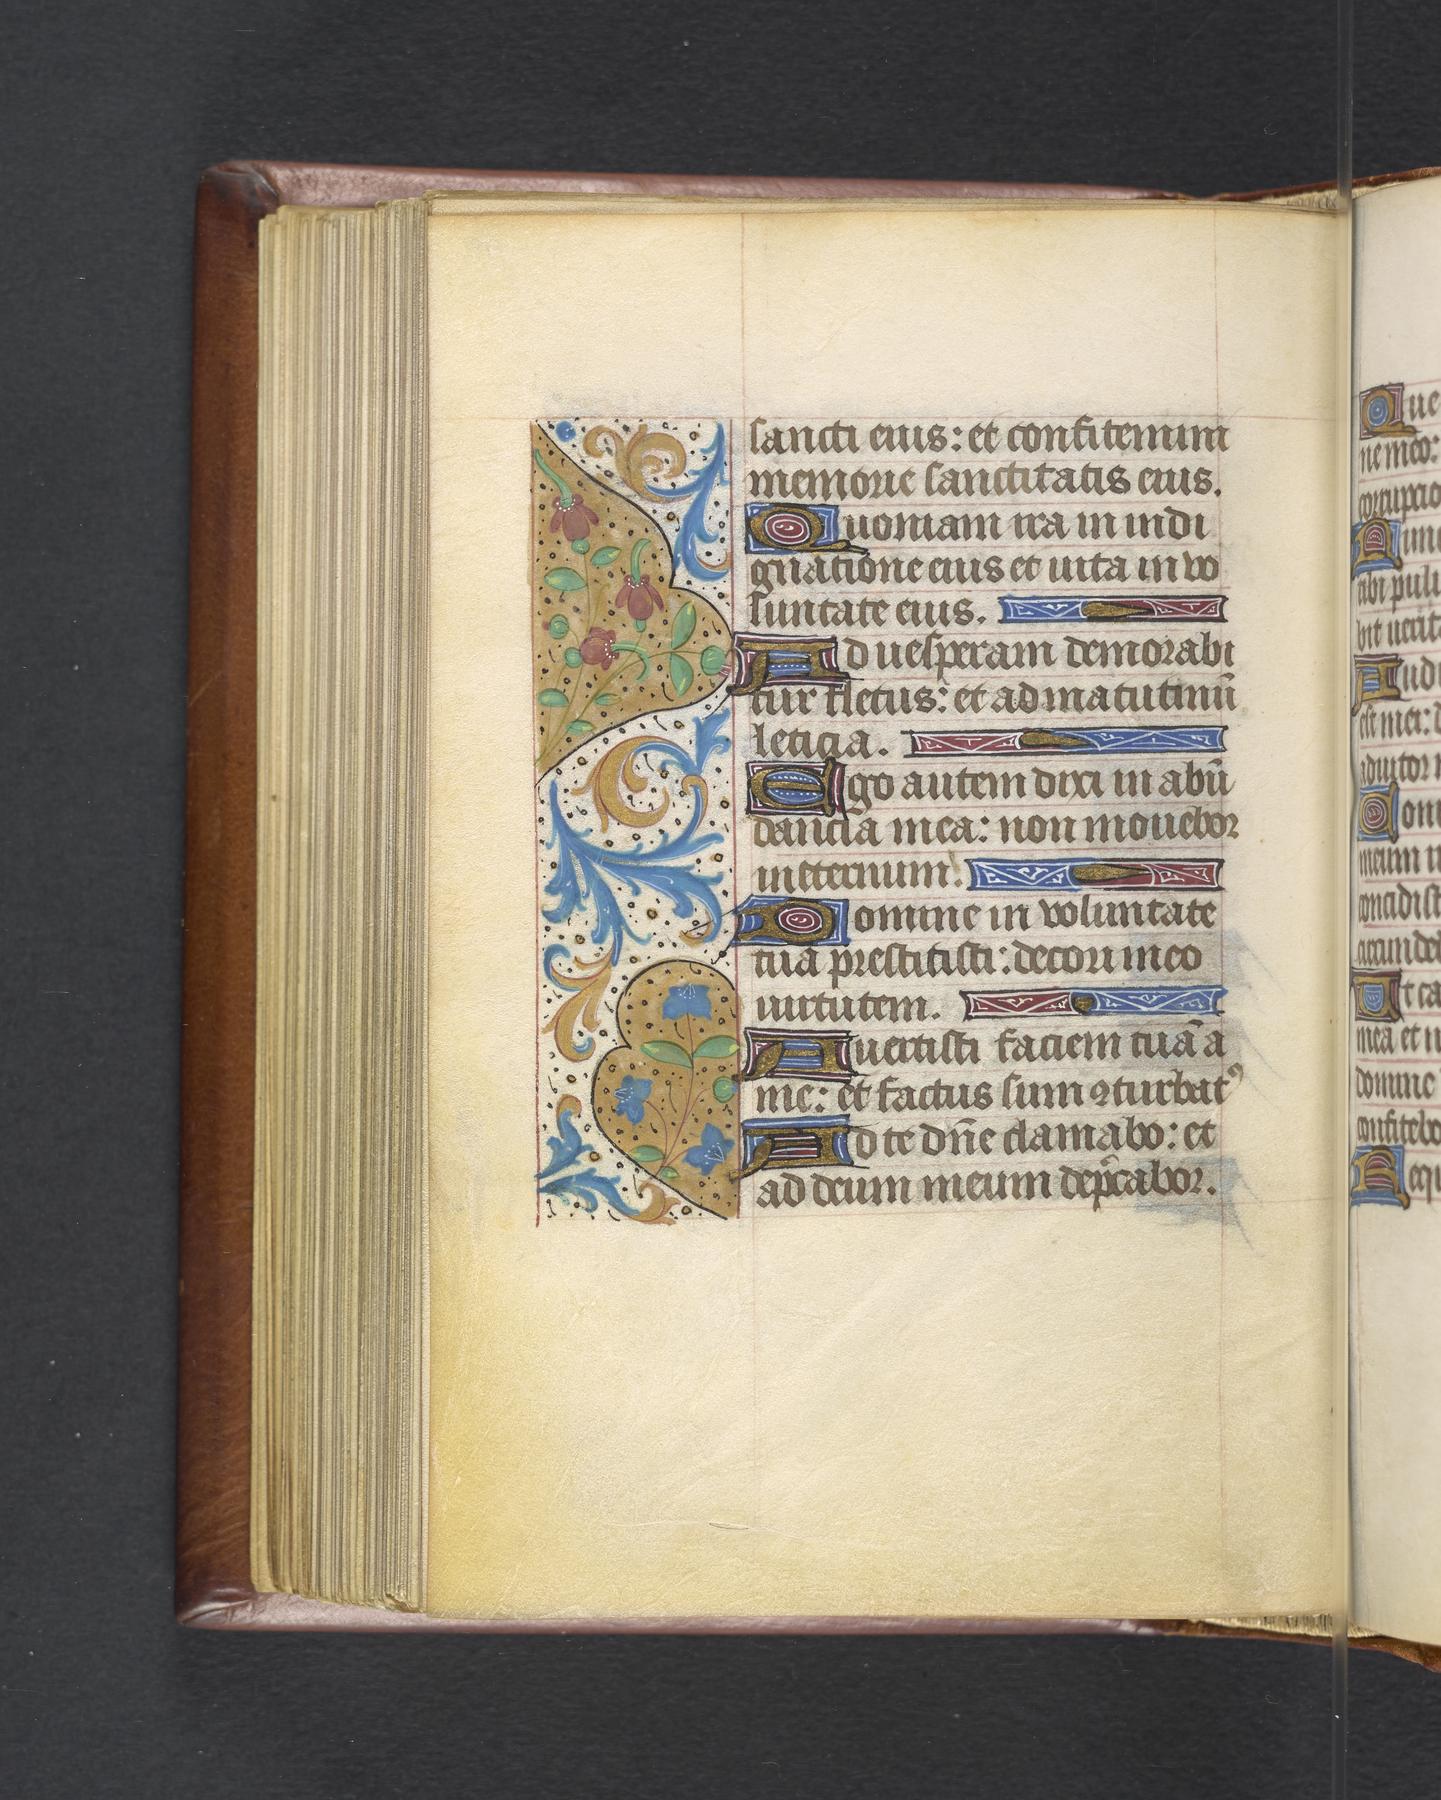 sancti eius: et confitemini
memorie sanctitatis eius.
Quoniam ira in indi
gnatione eius et uita in vo
luntate eius.
Ad uesperam demorabi
tur fletus: et ad matutinū
leticia.
Ego autem dixi in abū
dancia mea: non mouebor
ineternum.
Domine in voluntate
tua prestitisti: decori meo
uirtutem.
Auertisti faciem tuā a
me: et factus sum ꝯturbatꝰ
Ad te dn̄e clamabo: et
ad deum meum dep̄cabor.
Que
ne meo:
corrupcio
Nun
abi pulu
bit uerita
Audi
est mei: d
adiutor m
Con
meum in
concidist
circunded
Ut ca
mea et n
domine
confitebo
Requi